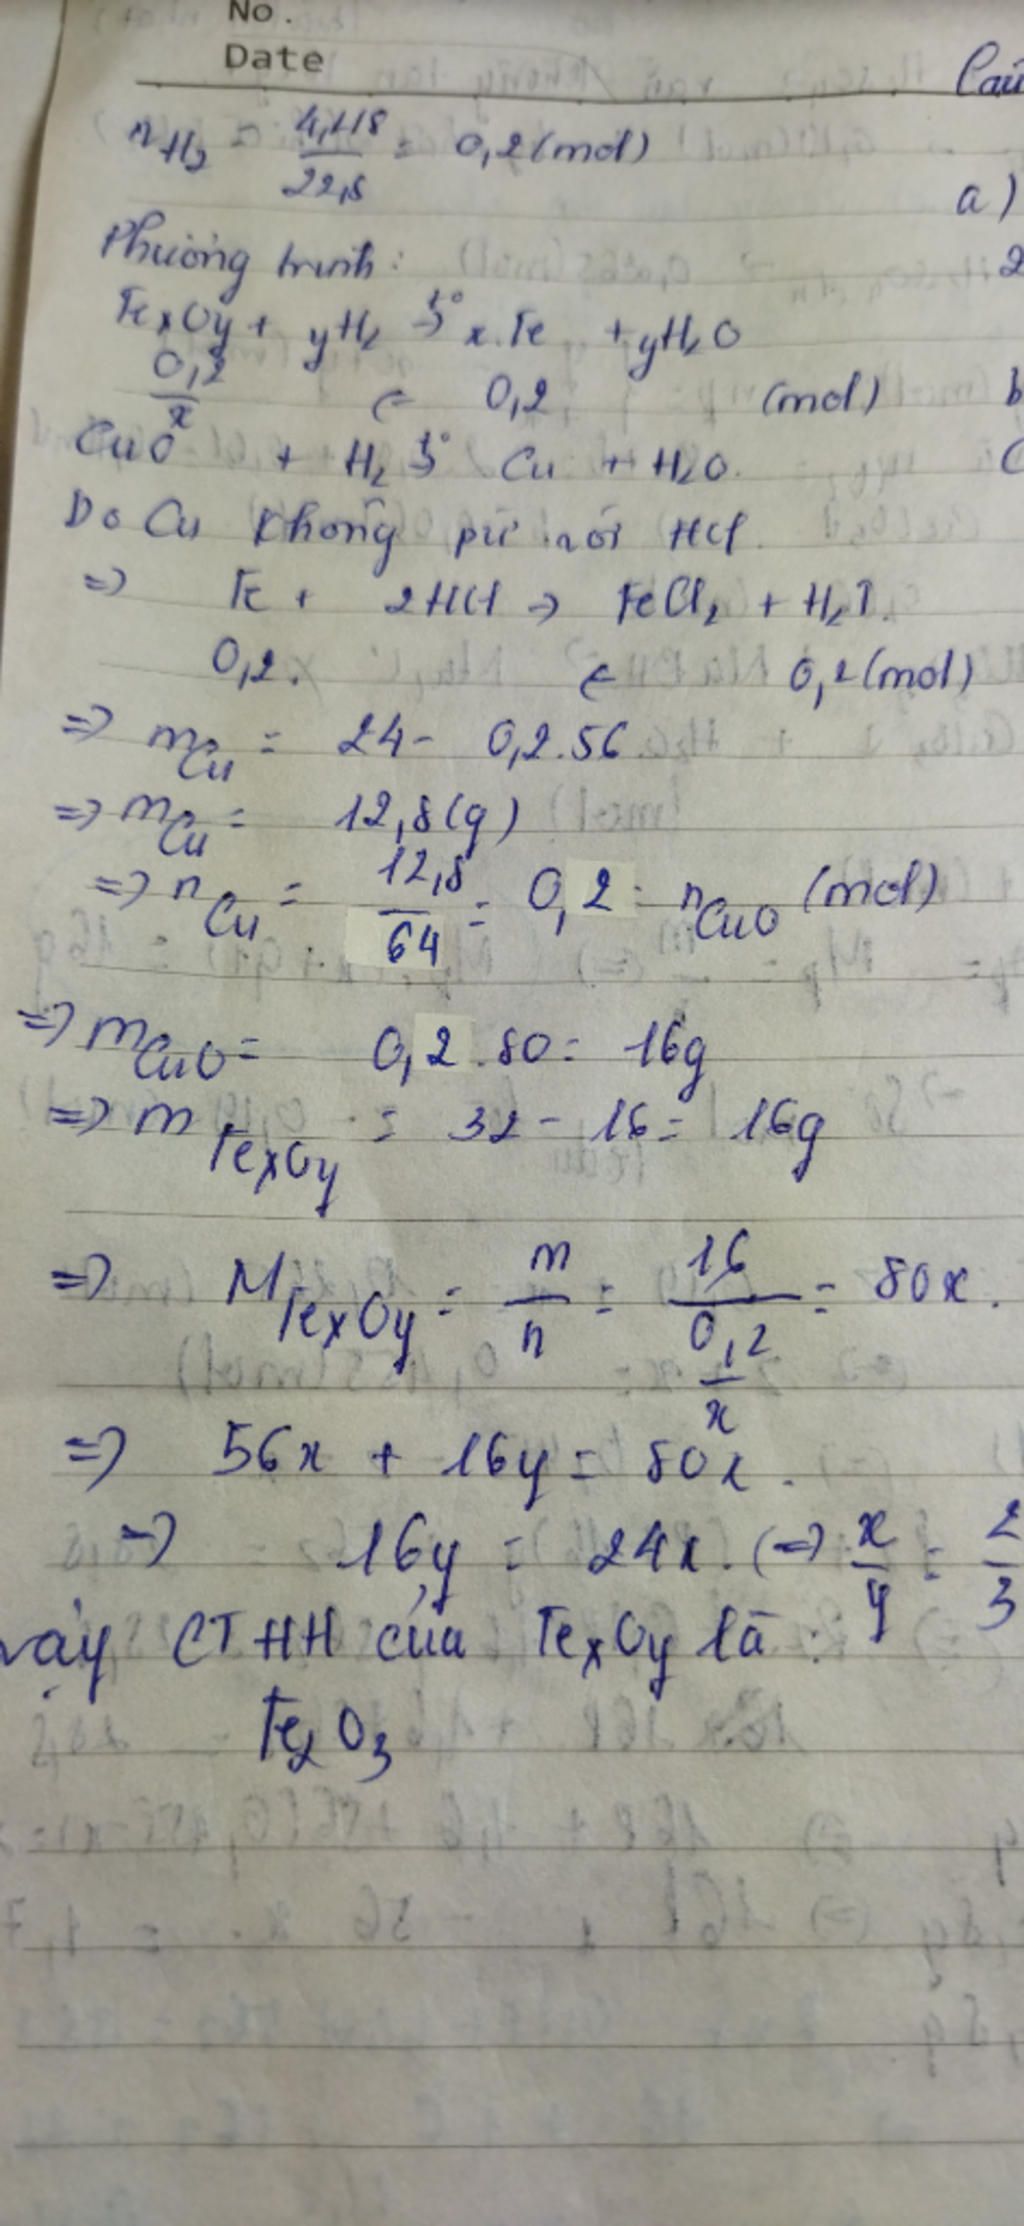 No.
Date
Câu
nH2 = 4,48/22,4 = 0,2 (mol)
a)
Phương trình:
2
FexOy + yH2 →t° x.Fe + yH2O
0,2/x ← 0,2 (mol)
b
CuO + H2 →t° Cu + H2O.
C
Do Cu không pứ với HCl.
=> Fe + 2HCl → FeCl2 + H2↑.
0,2. ← 0,2 (mol)
=> mCu = 24 - 0,2.56
=> mCu = 12,8 (g)
=> nCu = 12,8/64 = 0,2 = nCuO (mol)
=> mCuO = 0,2.80 = 16g
=> mFexOy = 32 - 16 = 16g
=> MFexOy = m/n = 16/(0,2/x) = 80x.
=> 56x + 16y = 80x.
=> 16y = 24x. (=> x/y = 2/3
vậy CTHH của FexOy là:
Fe2O3